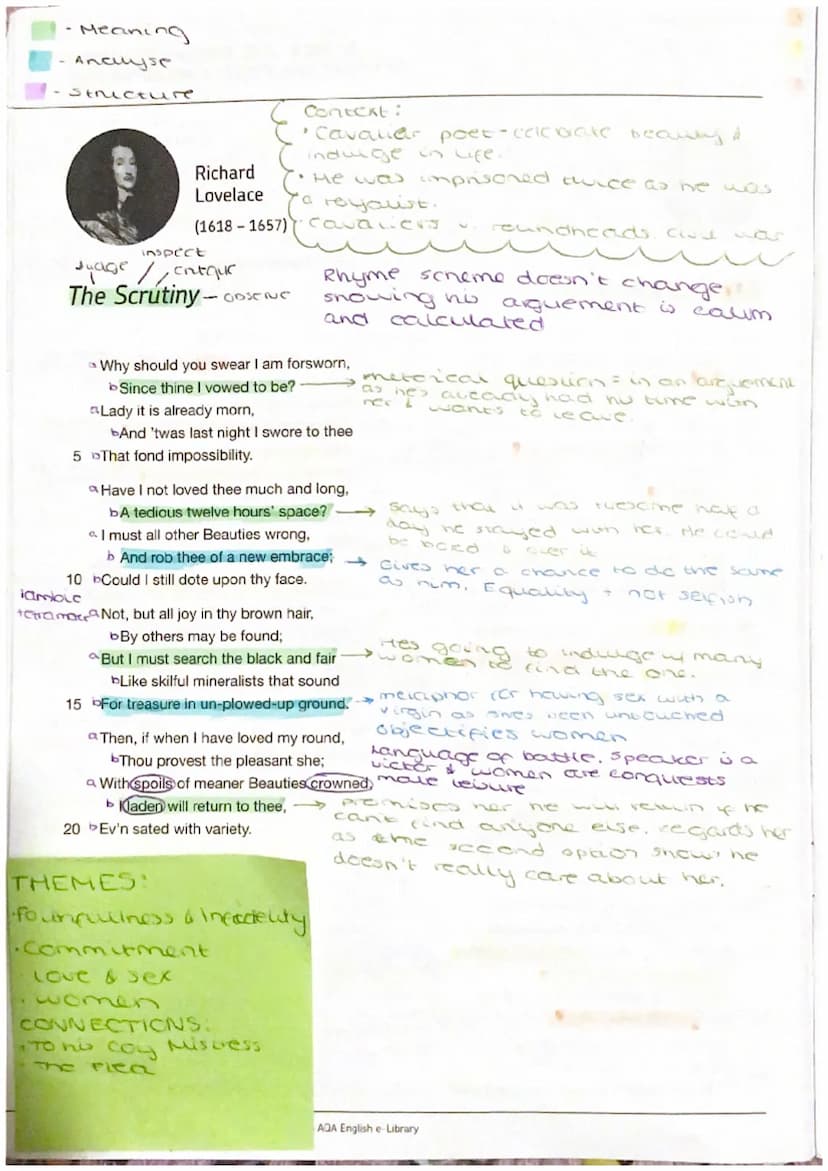 - Meaning
- Analyse
- Structure
Context:
• Cavalier poet - celebrate beauty &
indulge in life.
• He was imprisoned twice as he was
a royalist.
• Cavaliers v. roundheads civil war
Richard
Lovelace
(1618 – 1657)
inspect
Judge
critique
The Scrutiny - observe
Rhyme scheme doesn't change,
showing his arguement is calm
and calculated
a Why should you swear I am forsworn,
b Since thine I vowed to be?
rhetorical question = in an arguement
as he's already had his time with
her & wants to leave.
a Lady it is already morn,
b And 'twas last night I swore to thee
5 b That fond impossibility.
a Have I not loved thee much and long,
b A tedious twelve hours' space?
says that it was tiresome half a
day he stayed with her. He could
be bored & over it
a I must all other Beauties wrong,
b And rob thee of a new embrace;
Gives her a chance to do the same
as him. Equality + not selfish
10 b Could I still dote upon thy face.
iambic
tetrameter
a Not, but all joy in thy brown hair,
b By others may be found;
a But I must search the black and fair
Hes going to indulge w/ many
women to find the one.
b Like skilful mineralists that sound
15 b For treasure in un-plowed-up ground.
metaphor for having sex with a
virgin as shes been untouched
objectifies women
a Then, if when I have loved my round,
b Thou provest the pleasant she;
a With spoils of meaner Beauties crowned,
Language of battle. Speaker is a
victor & women are conquests
male leisure
b I laden will return to thee,
promises her he will return if he
can't find anyone else. regards her
as the second option shows he
doesn't really care about her.
20 b Ev'n sated with variety.
THEMES:
• Faithfulness & Infidelity
• Commitment
Love & sex
• women
CONNECTIONS:
• To his Coy Mistress
- The Flea
AQA English e-Library